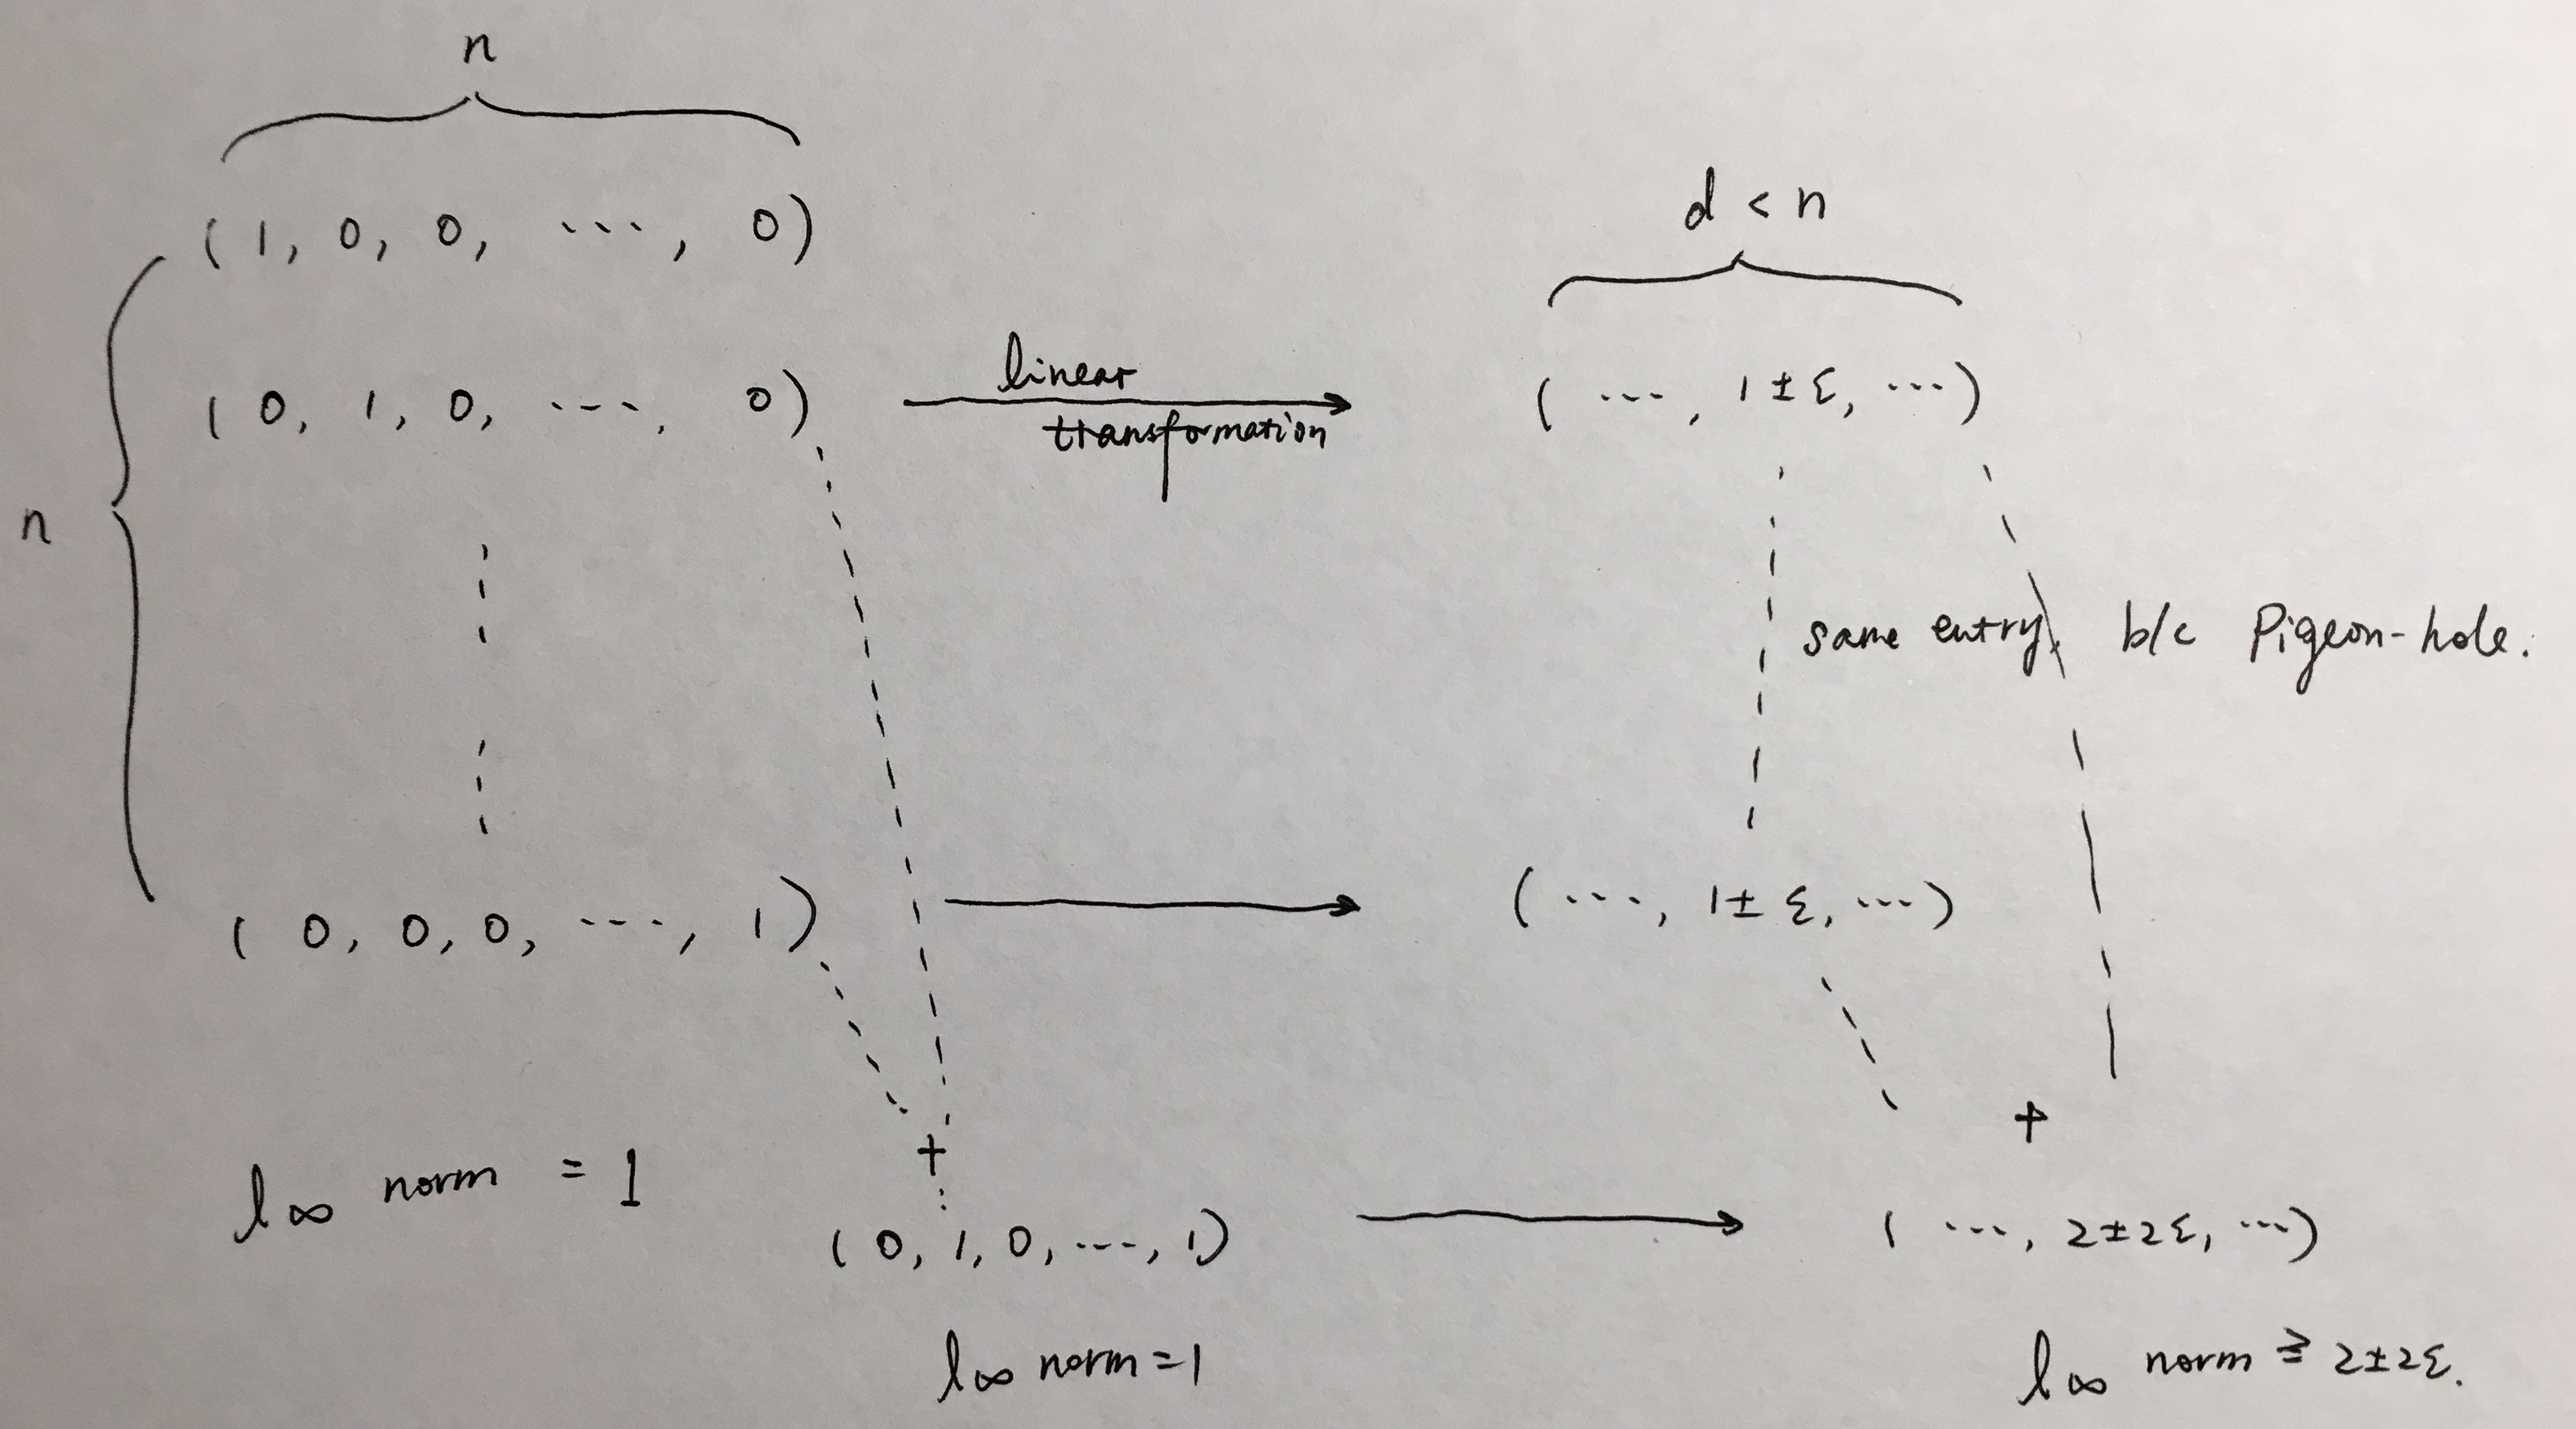 n
(1, 0, 0, ..., 0)
d < n
(0, 1, 0, ..., 0)
linear
transformation
(..., 1 ± ε, ...)
n
same entry b/c Pigeon-hole.
(0, 0, 0, ..., 1)
(..., 1 ± ε, ...)
+
+
l∞ norm = 1
(0, 1, 0, ..., 1)
(..., 2±2ε, ...)
l∞ norm = 1
l∞ norm ≥ 2±2ε.